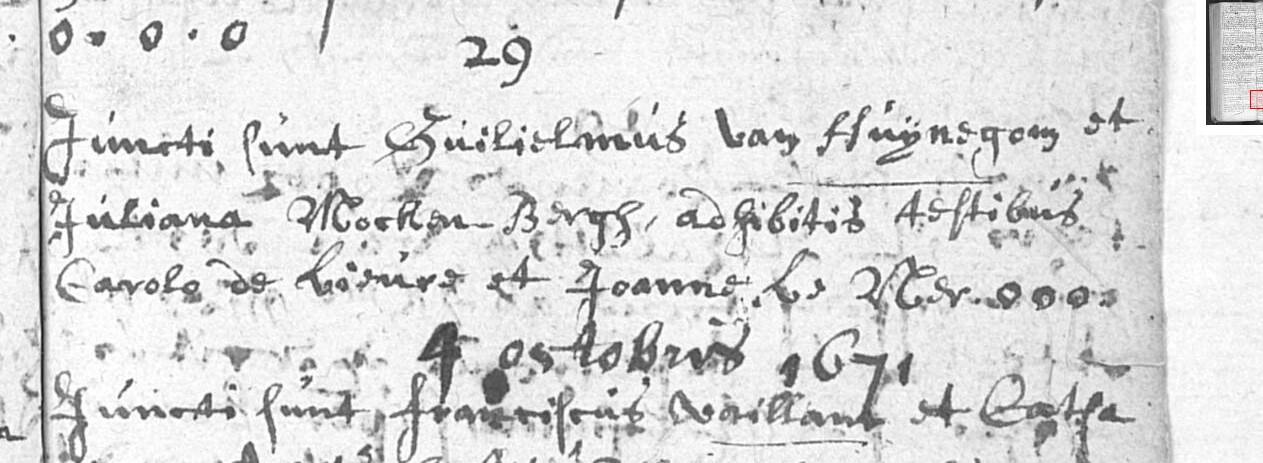 0 · 0 · 0
29
Juncti sunt Guilielmus van Huynegom et
Juliana Mocken Bergh, adhibitis testibus
Carolo de bieure et Joanne, Le Mer. 000.
4 octobris 1671
Juncti sunt franciscus vaillant et Catha